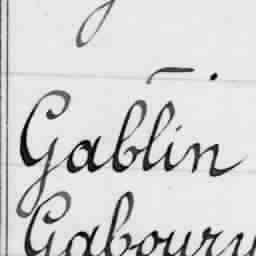 Gablin
Gaboury